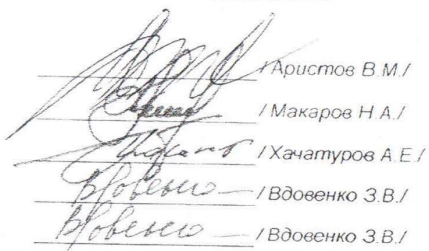 /Аристов В.М./
/Макаров Н.А./
/Хачатуров А.Е./
Вдовенко /Вдовенко З.В./
Вдовенко /Вдовенко З.В./